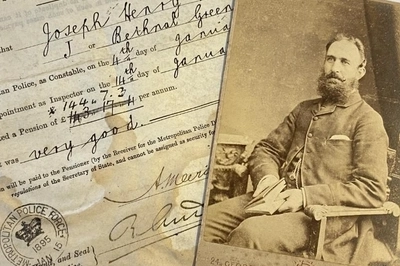 Joseph Henry
that J or Bethnal Green
on the 4th day of Janua
an Police, as Constable, on the
14th day of Janua
pointment as Inspector on the
144. 7. 3
ed a Pension of £ per annum.
was very good.
will be paid to the Pensioner (by the Receiver for the Metropolitan Police D
regulations of the Secretary of State, and cannot be assigned as security for
METROPOLITAN POLICE FORCE
1895
JAN 15
and Seal